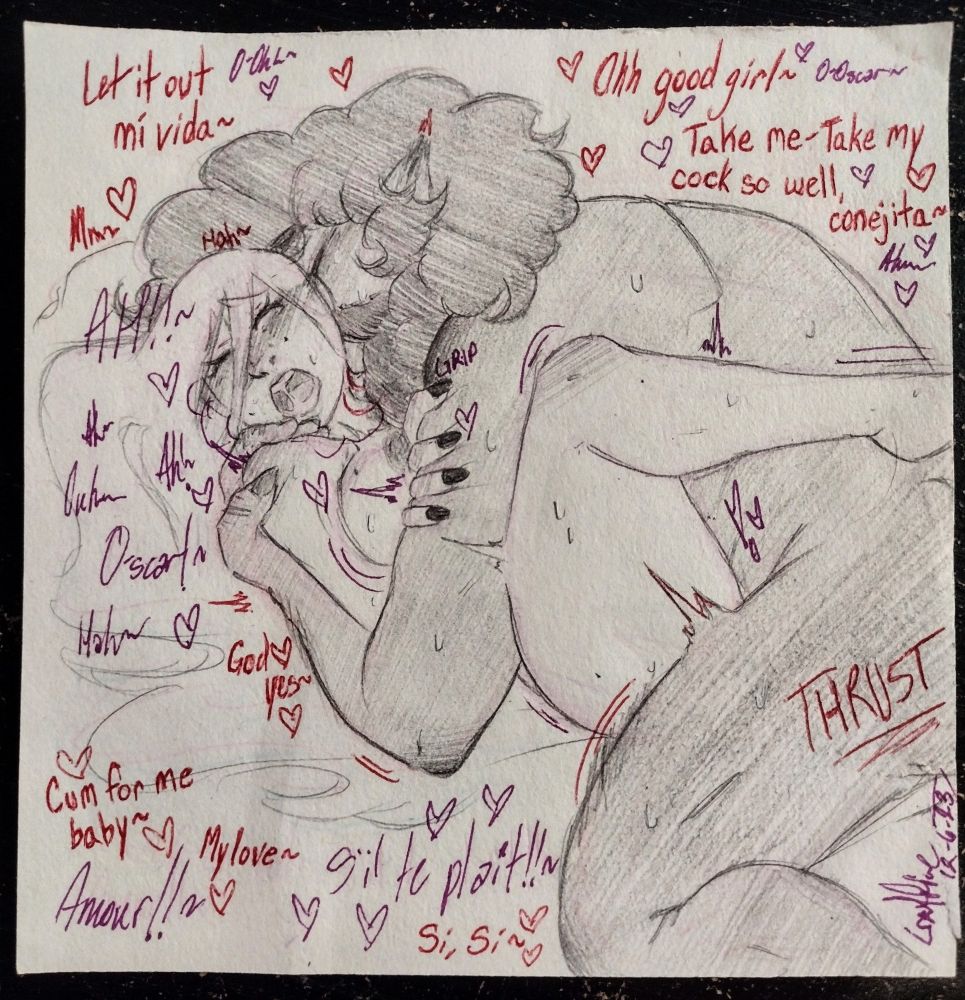 Let it out
mí vida~
O-Ohh~
Ohh good girl~
O-Oscar~
Take me-Take my
cock so well,
conejita~
Mmm
Hah~
AH!!~
GRIP
Ah~
Ah~
O-scar!~
Hah~
God
yes~
THRUST
Cum for me
baby~
My love~
Amour!!~
S'il te plait!!~
Si, Si~
12-6-23